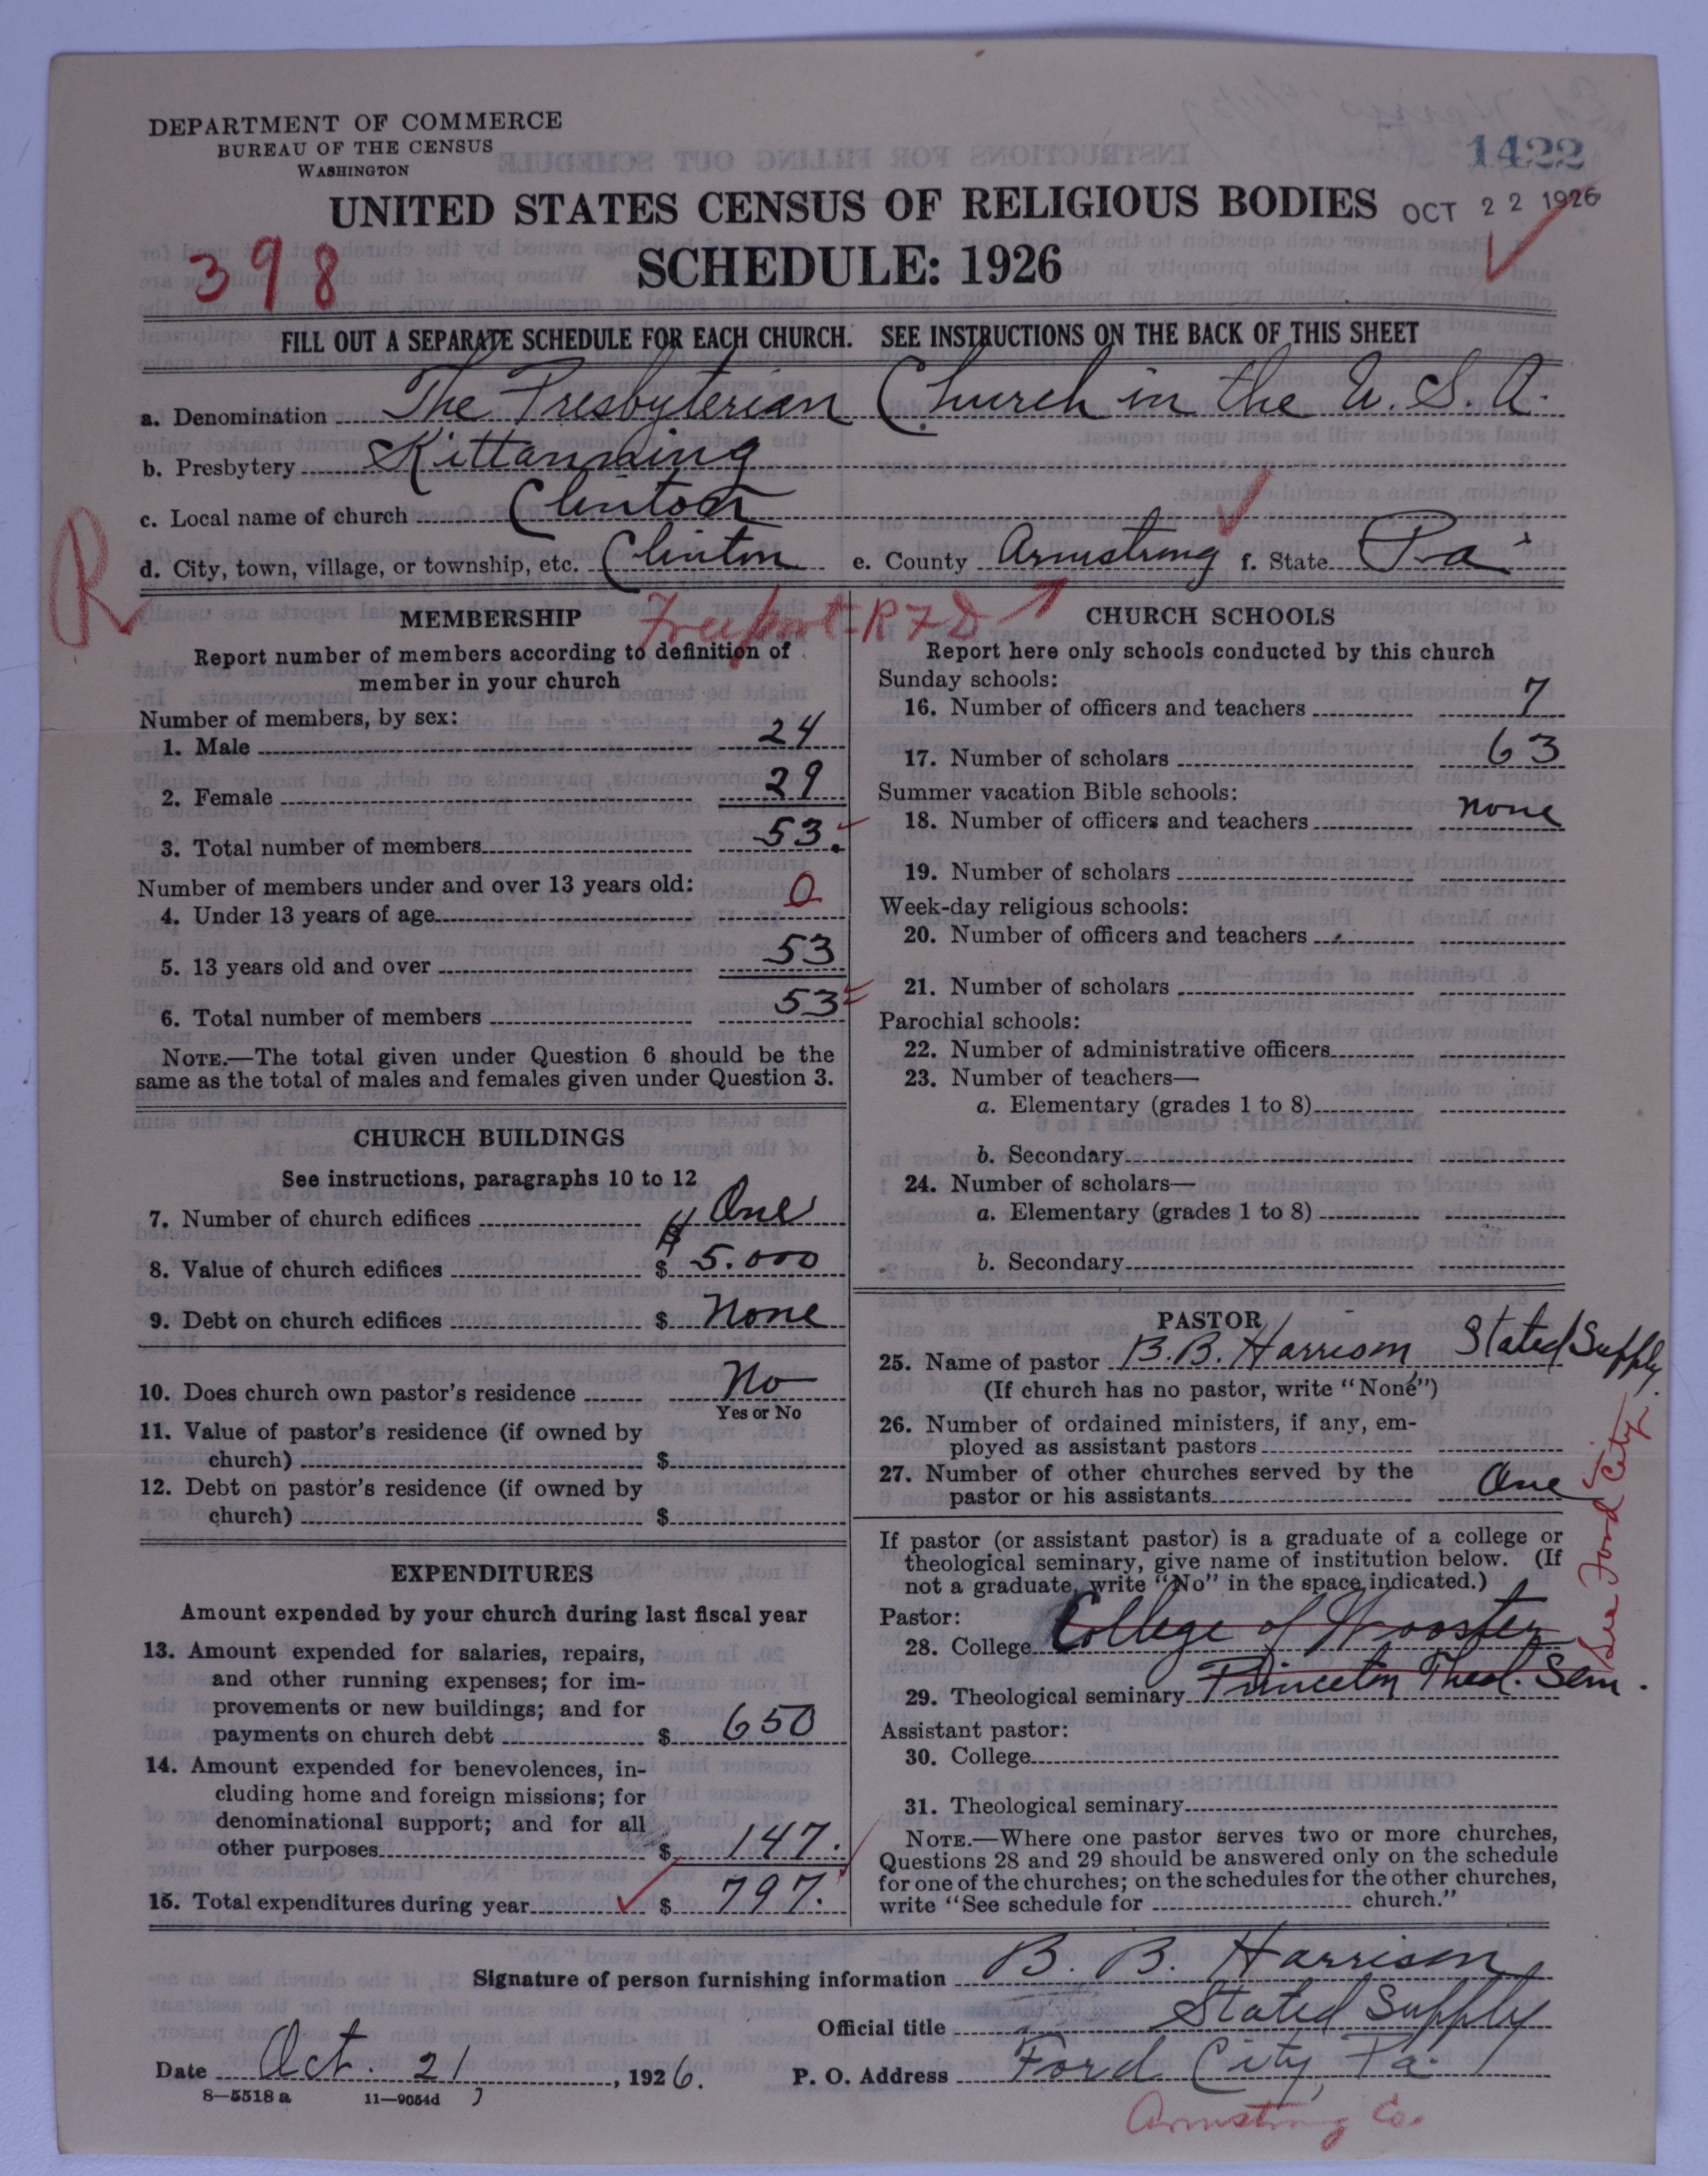 DEPARTMENT OF COMMERCE
BUREAU OF THE CENSUS
WASHINGTON
1422
UNITED STATES CENSUS OF RELIGIOUS BODIES
OCT 22 1926
398
SCHEDULE: 1926
FILL OUT A SEPARATE SCHEDULE FOR EACH CHURCH. SEE INSTRUCTIONS ON THE BACK OF THIS SHEET
a. Denomination The Presbyterian Church in the U. S. A.
b. Presbytery Kittanning
c. Local name of church Clinton
d. City, town, village, or township, etc. Clinton e. County Armstrong f. State Pa
R
Freeport-RFD
MEMBERSHIP
Report number of members according to definition of
member in your church
Number of members, by sex:
1. Male 24
2. Female 29
3. Total number of members 53.
Number of members under and over 13 years old:
4. Under 13 years of age 0
5. 13 years old and over 53
6. Total number of members 53
NOTE.—The total given under Question 6 should be the
same as the total of males and females given under Question 3.
CHURCH BUILDINGS
See instructions, paragraphs 10 to 12
7. Number of church edifices One
8. Value of church edifices $ 5.000
9. Debt on church edifices $ None
10. Does church own pastor's residence No
Yes or No
11. Value of pastor's residence (if owned by
church) $
12. Debt on pastor's residence (if owned by
church) $
EXPENDITURES
Amount expended by your church during last fiscal year
13. Amount expended for salaries, repairs,
and other running expenses; for im-
provements or new buildings; and for
payments on church debt $ 650
14. Amount expended for benevolences, in-
cluding home and foreign missions; for
denominational support; and for all
other purposes $ 147.
15. Total expenditures during year $ 797.
CHURCH SCHOOLS
Report here only schools conducted by this church
Sunday schools:
16. Number of officers and teachers 7
17. Number of scholars 63
Summer vacation Bible schools:
18. Number of officers and teachers none
19. Number of scholars
Week-day religious schools:
20. Number of officers and teachers
21. Number of scholars
Parochial schools:
22. Number of administrative officers
23. Number of teachers—
a. Elementary (grades 1 to 8)
b. Secondary
24. Number of scholars—
a. Elementary (grades 1 to 8)
b. Secondary
PASTOR
25. Name of pastor B.B. Harrison Stated Supply
(If church has no pastor, write "None")
26. Number of ordained ministers, if any, em-
ployed as assistant pastors
27. Number of other churches served by the
pastor or his assistants One
See Ford City
If pastor (or assistant pastor) is a graduate of a college or
theological seminary, give name of institution below. (If
not a graduate, write "No" in the space indicated.)
Pastor:
28. College College of Wooster
29. Theological seminary Princeton Theol. Sem.
Assistant pastor:
30. College
31. Theological seminary
NOTE.—Where one pastor serves two or more churches,
Questions 28 and 29 should be answered only on the schedule
for one of the churches; on the schedules for the other churches,
write "See schedule for church."
Signature of person furnishing information B. B. Harrison
Official title Stated Supply
Date Oct. 21, 1926. P. O. Address Ford City, Pa.
8—5518 a 11—9054d
Armstrong Co.